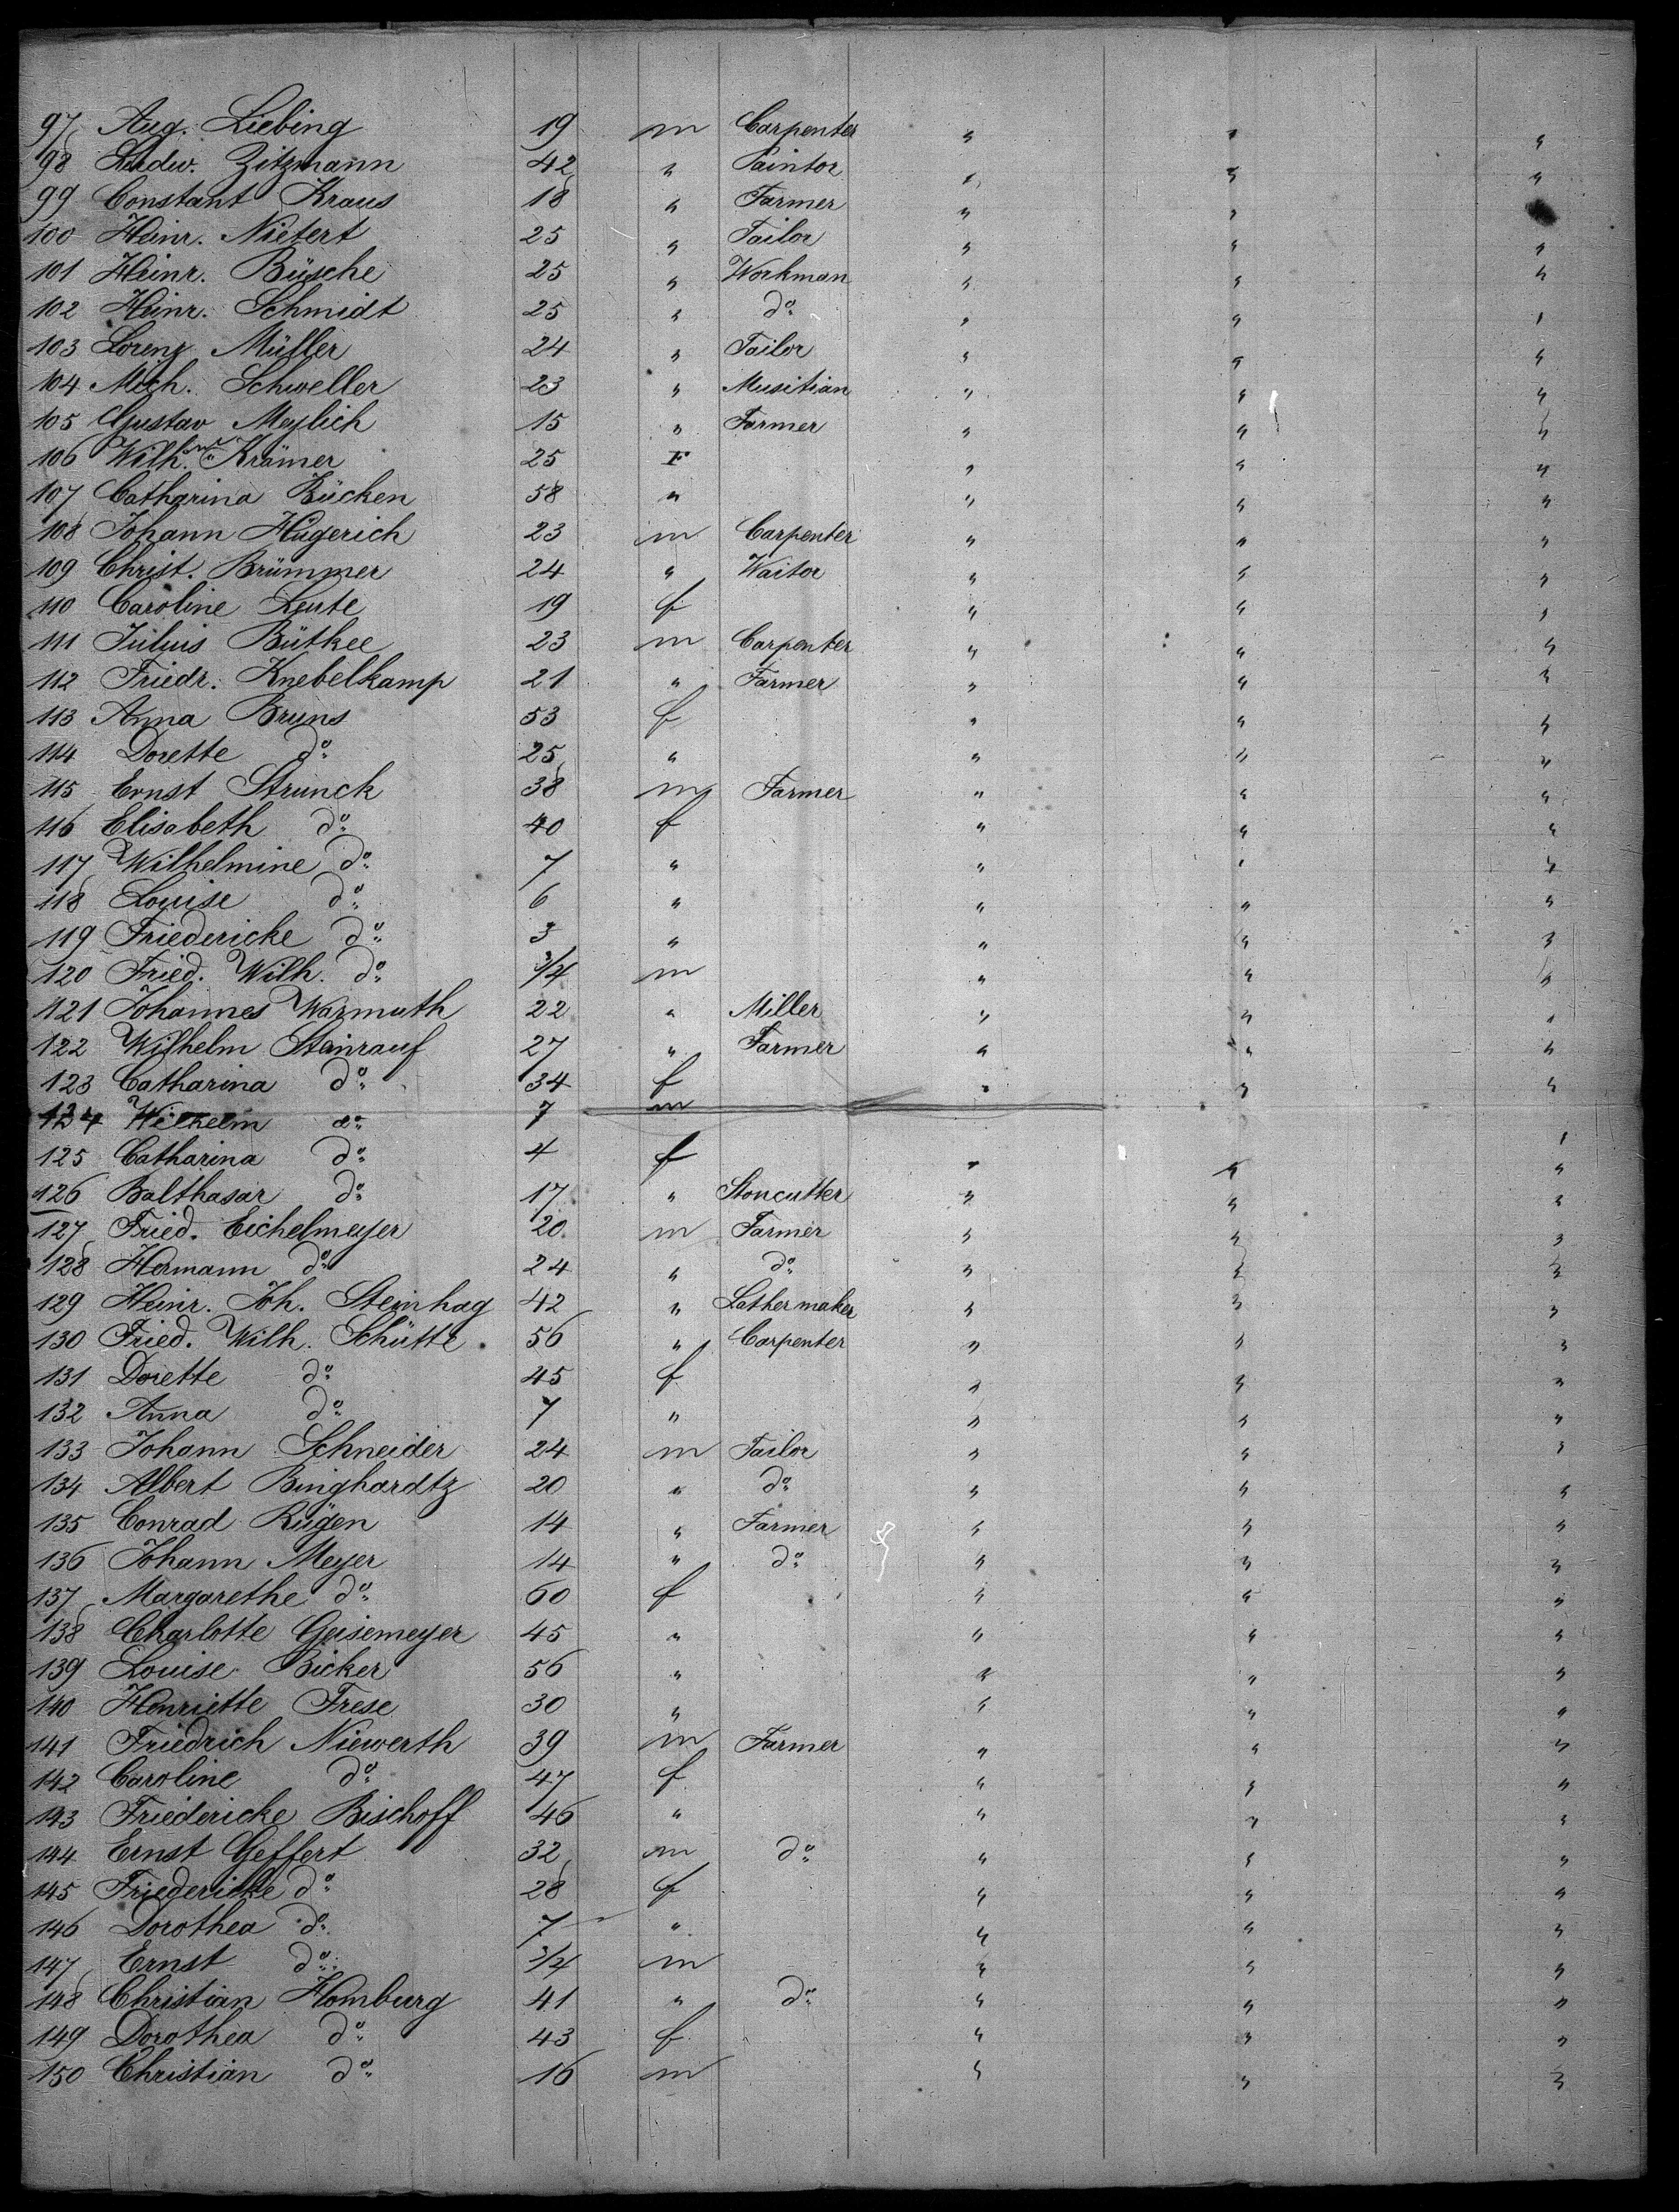 97 Aug. Liebing 19 m Carpenter " " "
98 Ludw. Zitzmann 42 " Paintor " " "
99 Constant Kraus 18 " Farmer " "
100 Heinr. Nietert 25 " Tailor " " "
101 Heinr. Büsche 25 " Workman " " "
102 Heinr. Schmidt 25 " do " " "
103 Lorenz Müller 24 " Tailor " " "
104 Mich. Schweller 23 " Musitian " " "
105 Gustav Meylich 15 " Farmer " " "
106 Wilh. Krämer 25 F " " "
107 Catharina Bücken 58 " " " "
108 Johann Hügerich 23 m Carpenter " " "
109 Christ. Brümmer 24 " Waitor " " "
110 Caroline Leute 19 f " " "
111 Julius Bütkee 23 m Carpenter " " "
112 Friedr. Knebelkamp 21 " Farmer " " "
113 Anna Bruns 53 f " " "
114 Dorette do 25 " " " "
115 Ernst Strunck 38 m Farmer " " "
116 Elisabeth do 40 f " " "
117 Wilhelmine do 7 " " " "
118 Louise do 6 " " " "
119 Friedericke do 3 " " " "
120 Fried. Wilh. do 3/4 m " " "
121 Johannes Warmuth 22 " Miller " " "
122 Wilhelm Steinrauf 27 " Farmer " " "
123 Catharina do 34 f " " "
124 Wilhelm do 7 m "
125 Catharina do 4 f " " "
126 Balthasar do 17 " Stoncutter " " "
127 Fried. Eichelmeyer 20 m Farmer " " "
128 Hermann do 24 " do " " "
129 Heinr. Joh. Steinhag 42 " Lathermaker " " "
130 Fried. Wilh. Schütte 56 " Carpenter " " "
131 Dorette do 45 f " " "
132 Anna do 7 " " " "
133 Johann Schneider 24 m Tailor " " "
134 Albert Binghardtz 20 " do " " "
135 Conrad Rügen 14 " Farmer " " "
136 Johann Meyer 14 " do " " "
137 Margarethe do 60 f " " "
138 Charlotte Geisemeyer 45 " " " "
139 Louise Bicker 56 " " " "
140 Henriette Frese 30 " " " "
141 Friedrich Niewerth 39 m Farmer " " "
142 Caroline do 47 f " " "
143 Friedericke Bischoff 46 " " " "
144 Ernst Geffert 32 m do " " "
145 Friedericke do 28 f " " "
146 Dorothea do 7 " " " "
147 Ernst do 3/4 m " " "
148 Christian Homburg 41 " do " " "
149 Dorothea do 43 f " " "
150 Christian do 16 m " " "